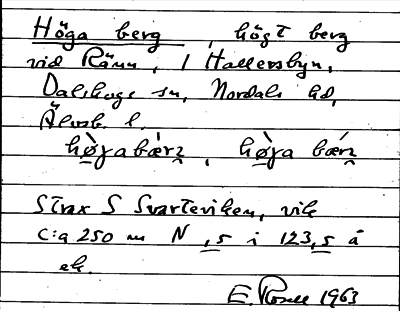 Höga berg, högt berg
vid Ränn, i Hallersbyn,
Dalskogs sn, Nordals hd,
Älvsb. l.
hø̀ɣabæ̀rʒ, hø̀ɣa bærʒ
Strax S Svarteviken, vik
c:a 250 m N ,5 i 123,5 å
ek.
E. Rosell 1963